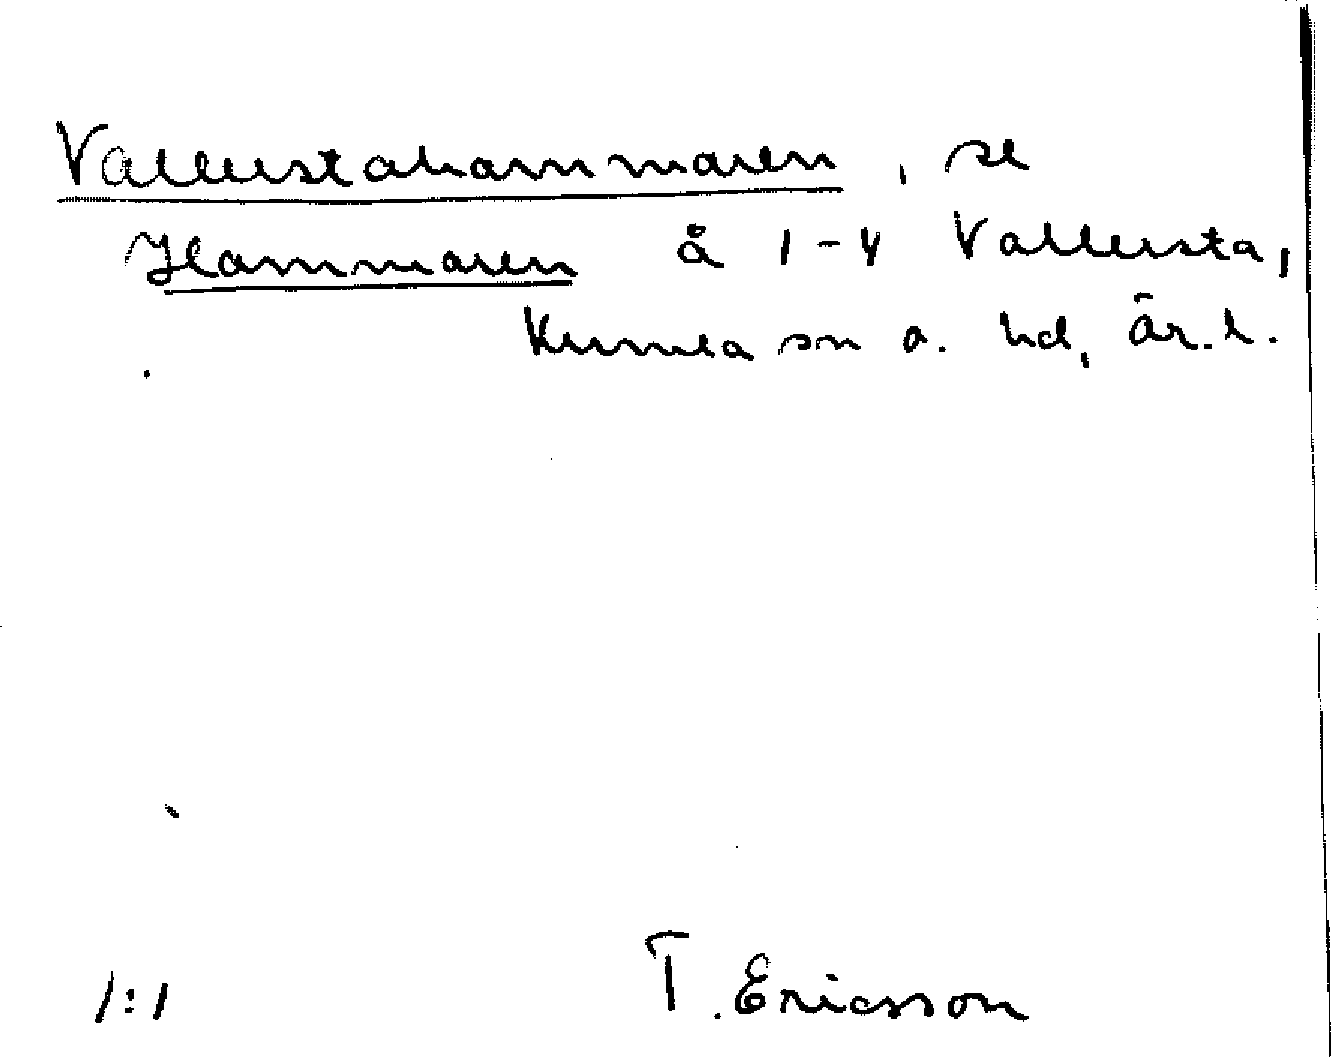 Vallerstahammaren, se
Hammaren å 1-4 Vallersta,
Kumla sn o. hd, Är.l.
1:1 T. Ericsson